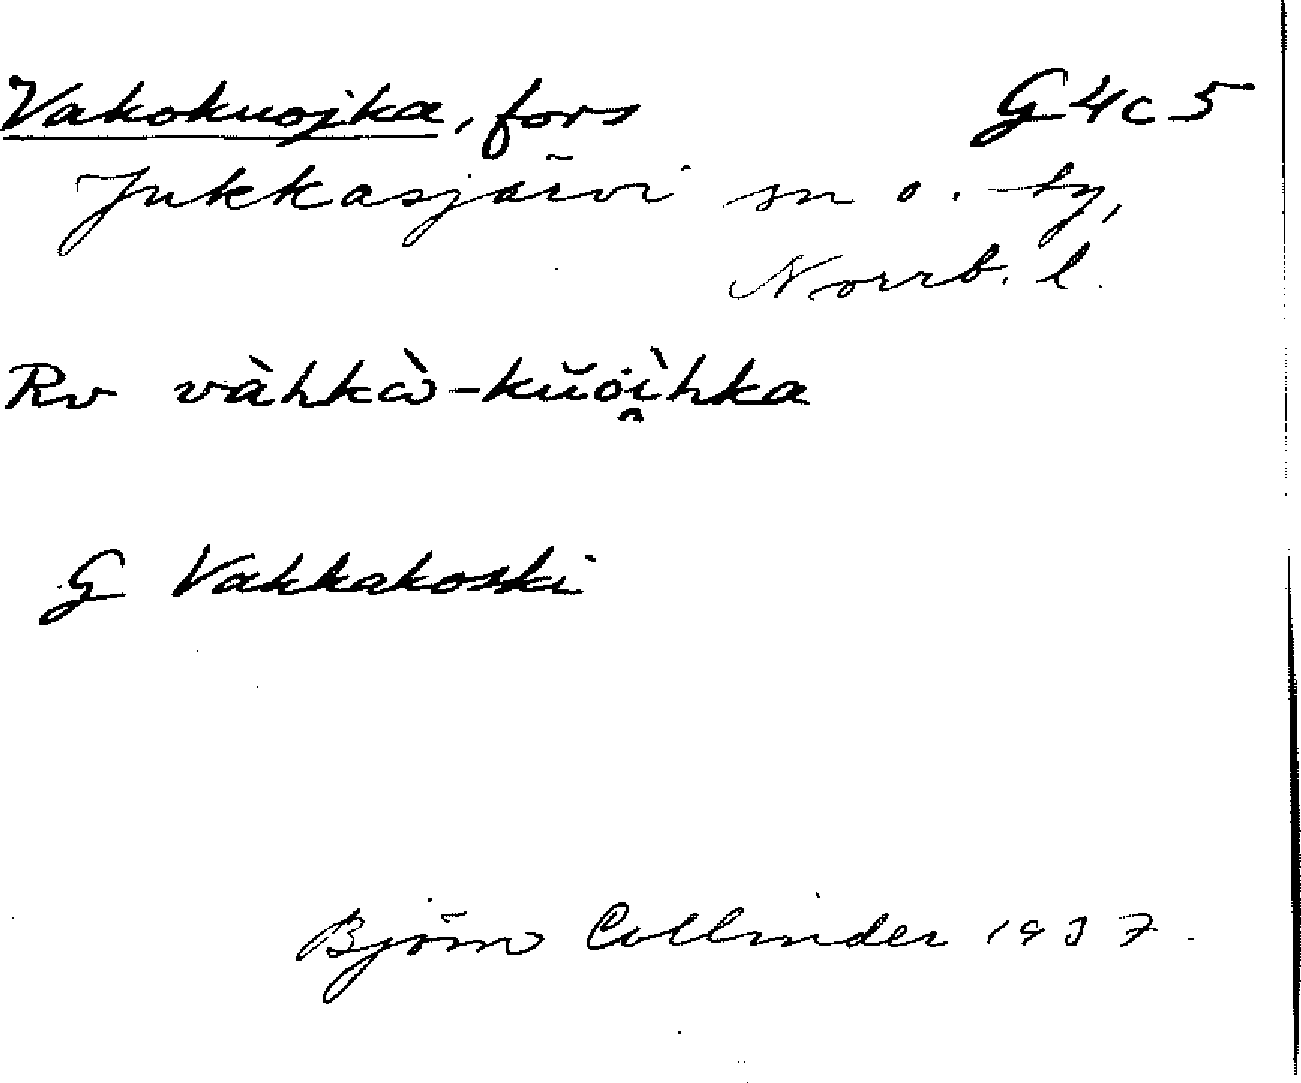 Vakokuojka, fors G4c5
Jukkasjärvi sn o. by,
Norrb. l.
Rv vàhkɷ̀-kŭoì̯hka
G Vakkakoski
Björn Collinder 1937.